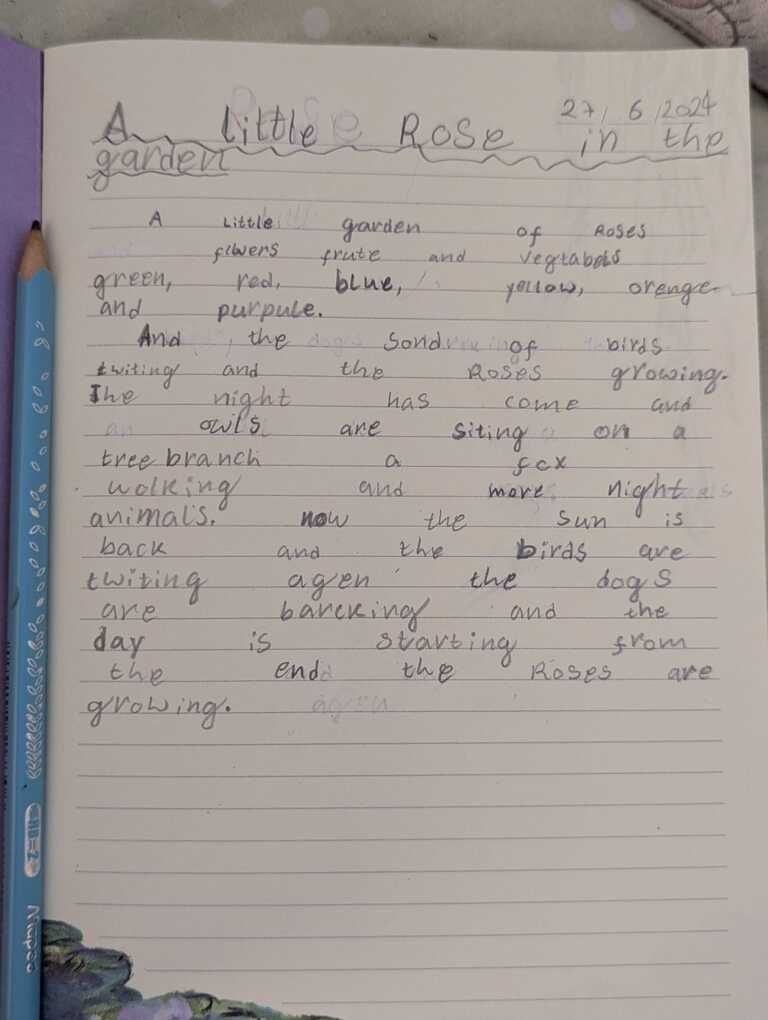 27/6/2024
A little Rose in the
garden
A Little garden of Roses
flwers frute and vegtabols
green, red, blue, yollow, orenge
and purpule.
And, the sond of birds
twiting and the Roses growing.
The night has come and
owls are siting on a
tree branch a fox
wolking and more night
animals. now the sun is
back and the birds are
twiting agen the dogs
are barcking and the
day is starting from
the end the Roses are
growing.
HB=2